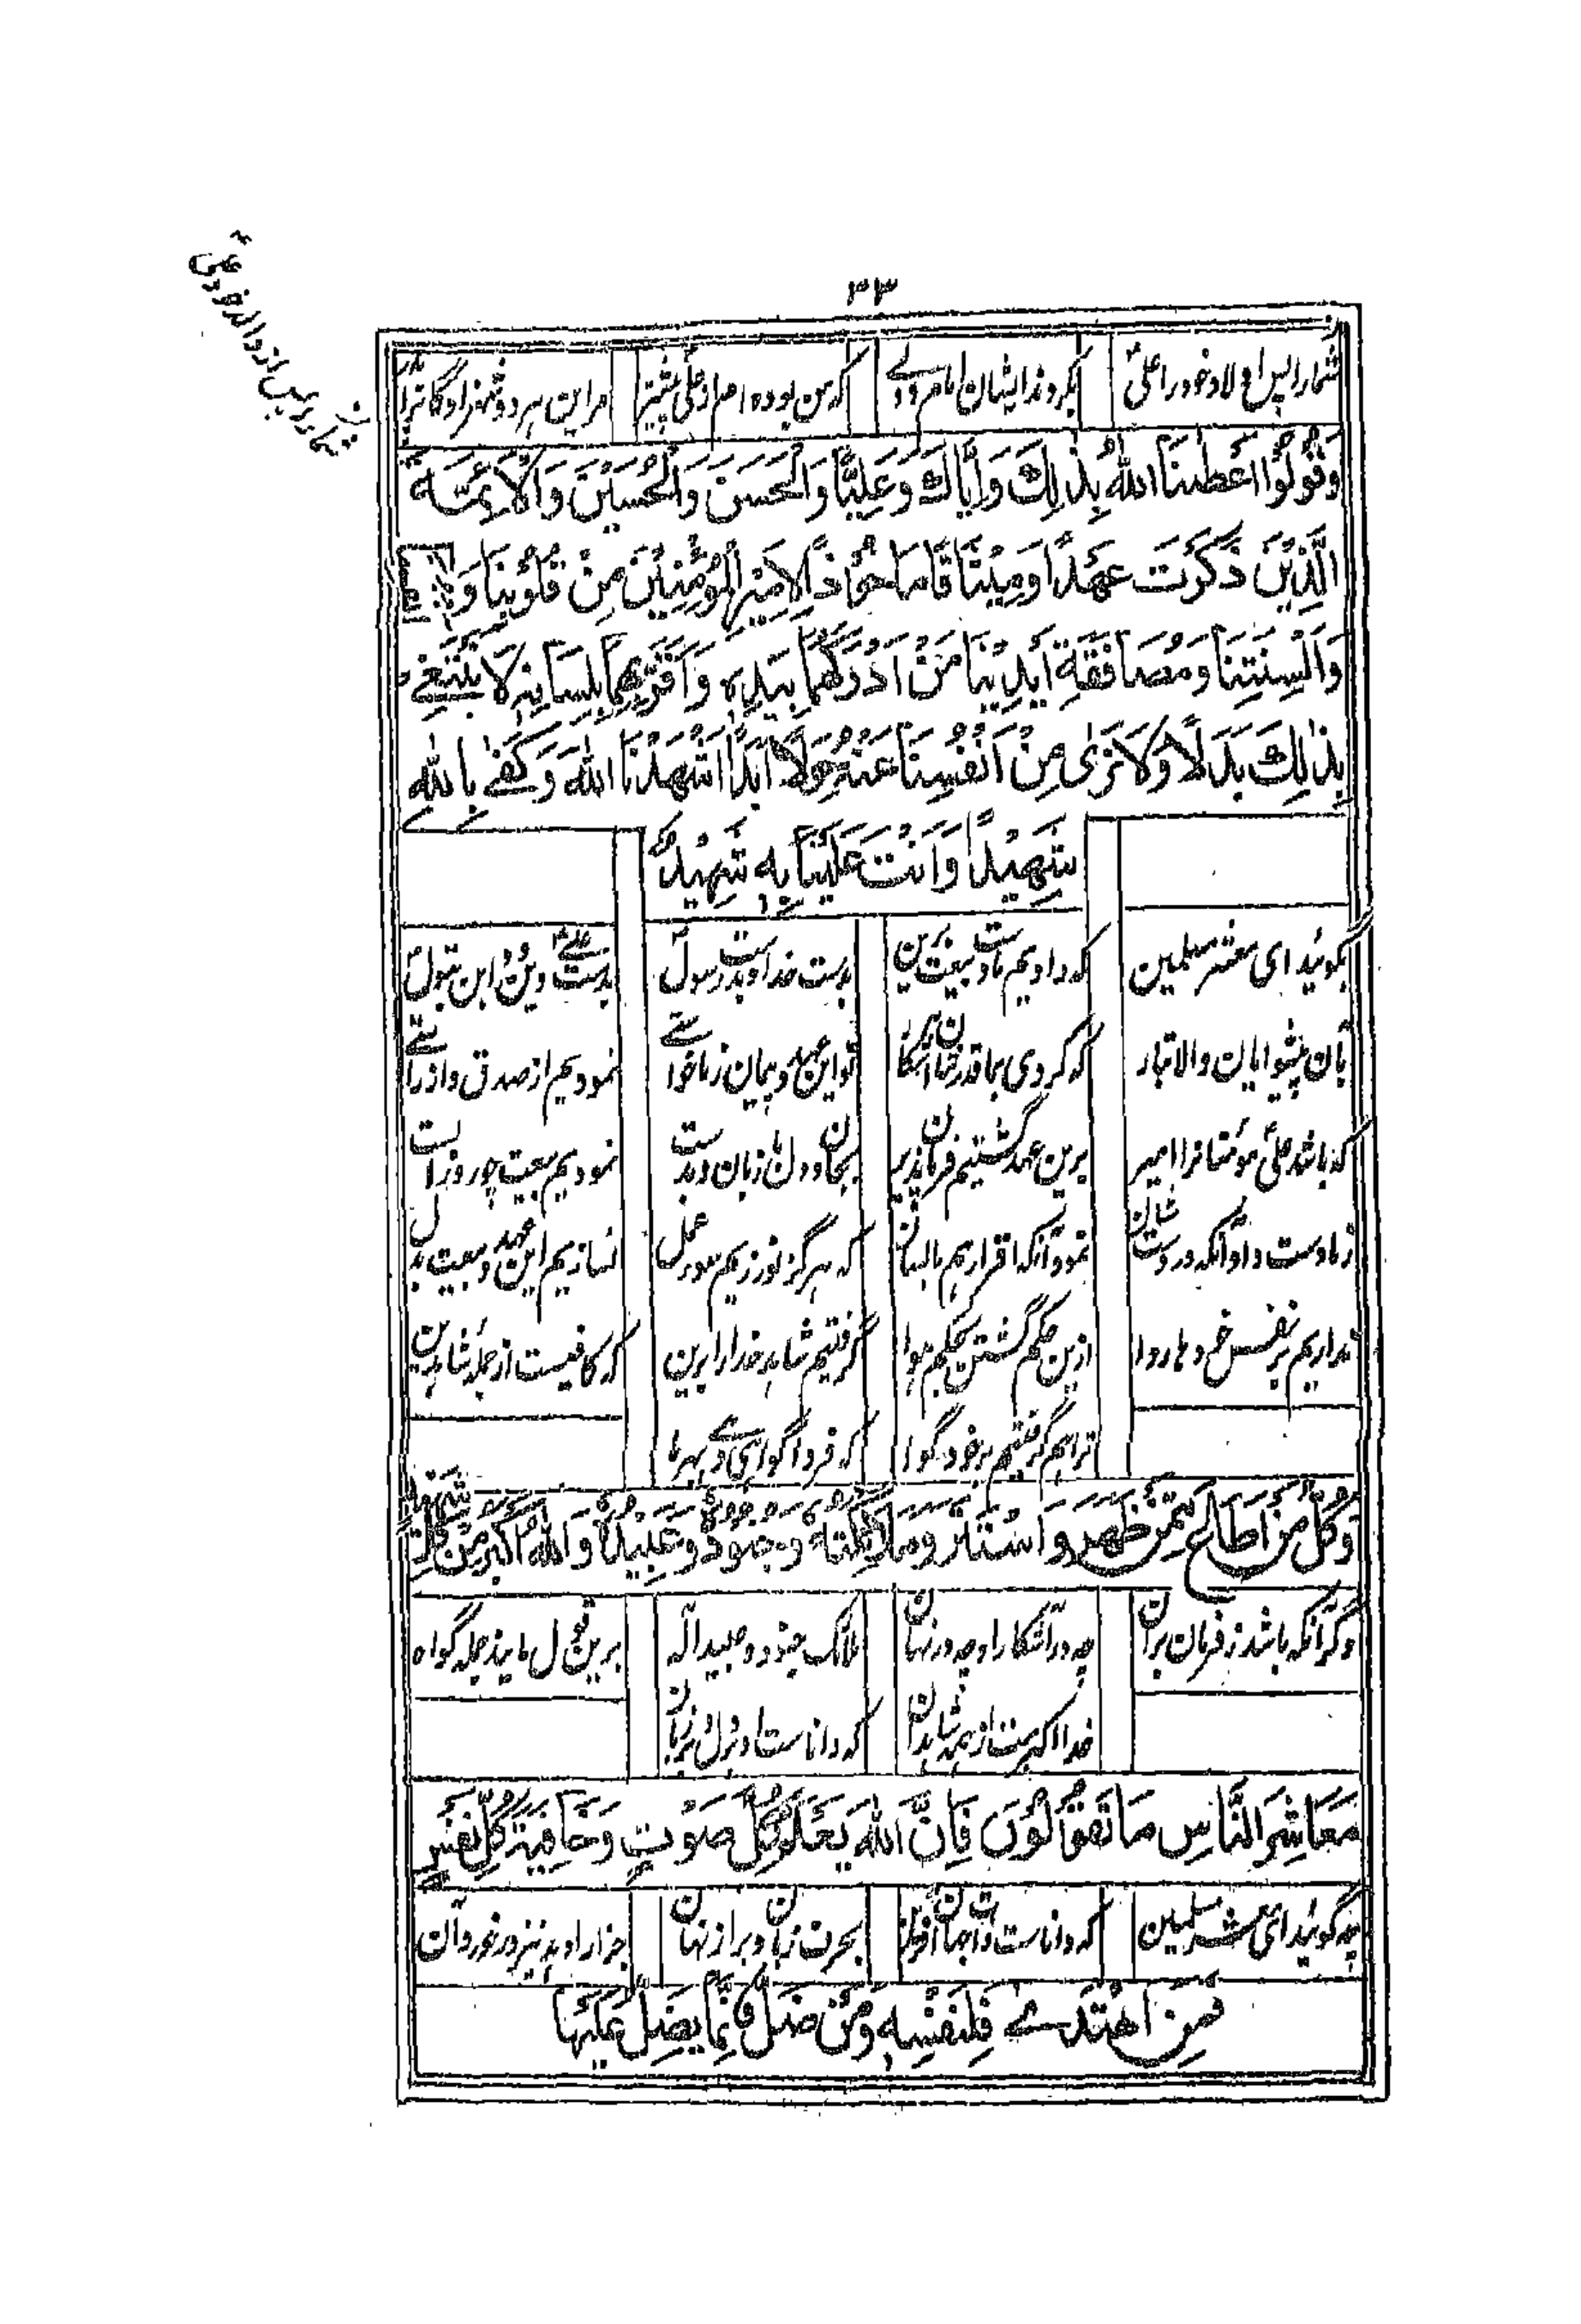 ٣٣
شمارا پس اولاد خود را علی
مر این هر دو شهزادگان را
وَقُولُوا اَعْطَيْنَا اللهَ بِذٰلِكَ وَاِيَّاكَ وَعَلِيًّا وَالْحَسَنَ وَالْحُسَيْنَ وَالْاَئِمَّةَ
الَّذِيْنَ ذَكَرْتَ عَهْدًا وَمِيْثَاقًا مَاخُوْذًا لِاَمِيْرِ الْمُؤْمِنِيْنَ مِنْ قُلُوْبِنَا وَ
وَاَلْسِنَتِنَا وَمُصَافَقَةِ اَيْدِيْنَا مَنْ اَدْرَكَهُمَا بِيَدِهِ وَاَقَرَّ بِهِمَا بِلِسَانِهِ لَا يَبْتَغِي
بِذٰلِكَ بَدَلًا وَلَا نَرٰى مِنْ اَنْفُسِنَا عَنْهُ حِوَلًا اَبَدًا اَشْهَدْنَا اللهَ وَكَفٰى بِاللهِ
شَهِيْدًا وَاَنْتَ عَلَيْنَا بِهِ شَهِيْدٌ
بگوئید ای معشر مسلمین که دادیم ما دست بیعت برین بدست خدا و بدست رسول بدست علی و دو ابن بتول
بآن پیشوایان والاتبار که کردی بما قدرشان آشکار تو این عهد و پیمان ز ما خواستی نمودیم از صدق و از راستی
که باشد علی مؤمنانرا امیر برین عهد گشتیم فرمان پذیر بجان و دل با زبان و بدست نمودیم بیعت چو روز الست
ز ما دست داد آنکه در دست شان نمود آنکه اقرار هم با لسان که هرگز نورزیم عمل نسازیم این عهد و بیعت بدل
نداریم بر نفس خود ها روا ازین حکم گشتن بحکم هوا گرفتیم شاهد خدا را برین که کافیست از جمله شاهدین
ترا هم گرفتیم بر خود گوا که فردا گواهی دهی بهر ما
وَكُلُّ مَنْ اَطَاعَ مِمَّنْ ظَهَرَ وَاسْتَتَرَ وَمَلَائِكَتُهُ وَجُنُوْدُهُ وَعَبِيْدُهُ وَاللهُ اَكْبَرُ مِنْ كُلِّ شَهِيْدٍ
دگر آنکه باشد ز فرمان بران چه در آشکارا و چه در نهان ملائک جنود و عبید اله برین قول مایند جمله گواه
خدا اکبرست از همه شاهدان که داناست او بر دل و بر زبان
مَعَاشِرَ النَّاسِ مَا تَقُوْلُوْنَ فَاِنَّ اللهَ يَعْلَمُ كُلَّ صَوْتٍ وَخَافِيَةَ كُلِّ نَفْسٍ
چه گوئید ای معشر مسلمین که داناست ذات جهان آفرین بحرف زبان و براز نهان جزا را دهد نیز در خور آن
فَمَنِ اهْتَدٰى فَلِنَفْسِهِ وَمَنْ ضَلَّ فَاِنَّمَا يَضِلُّ عَلَيْهَا